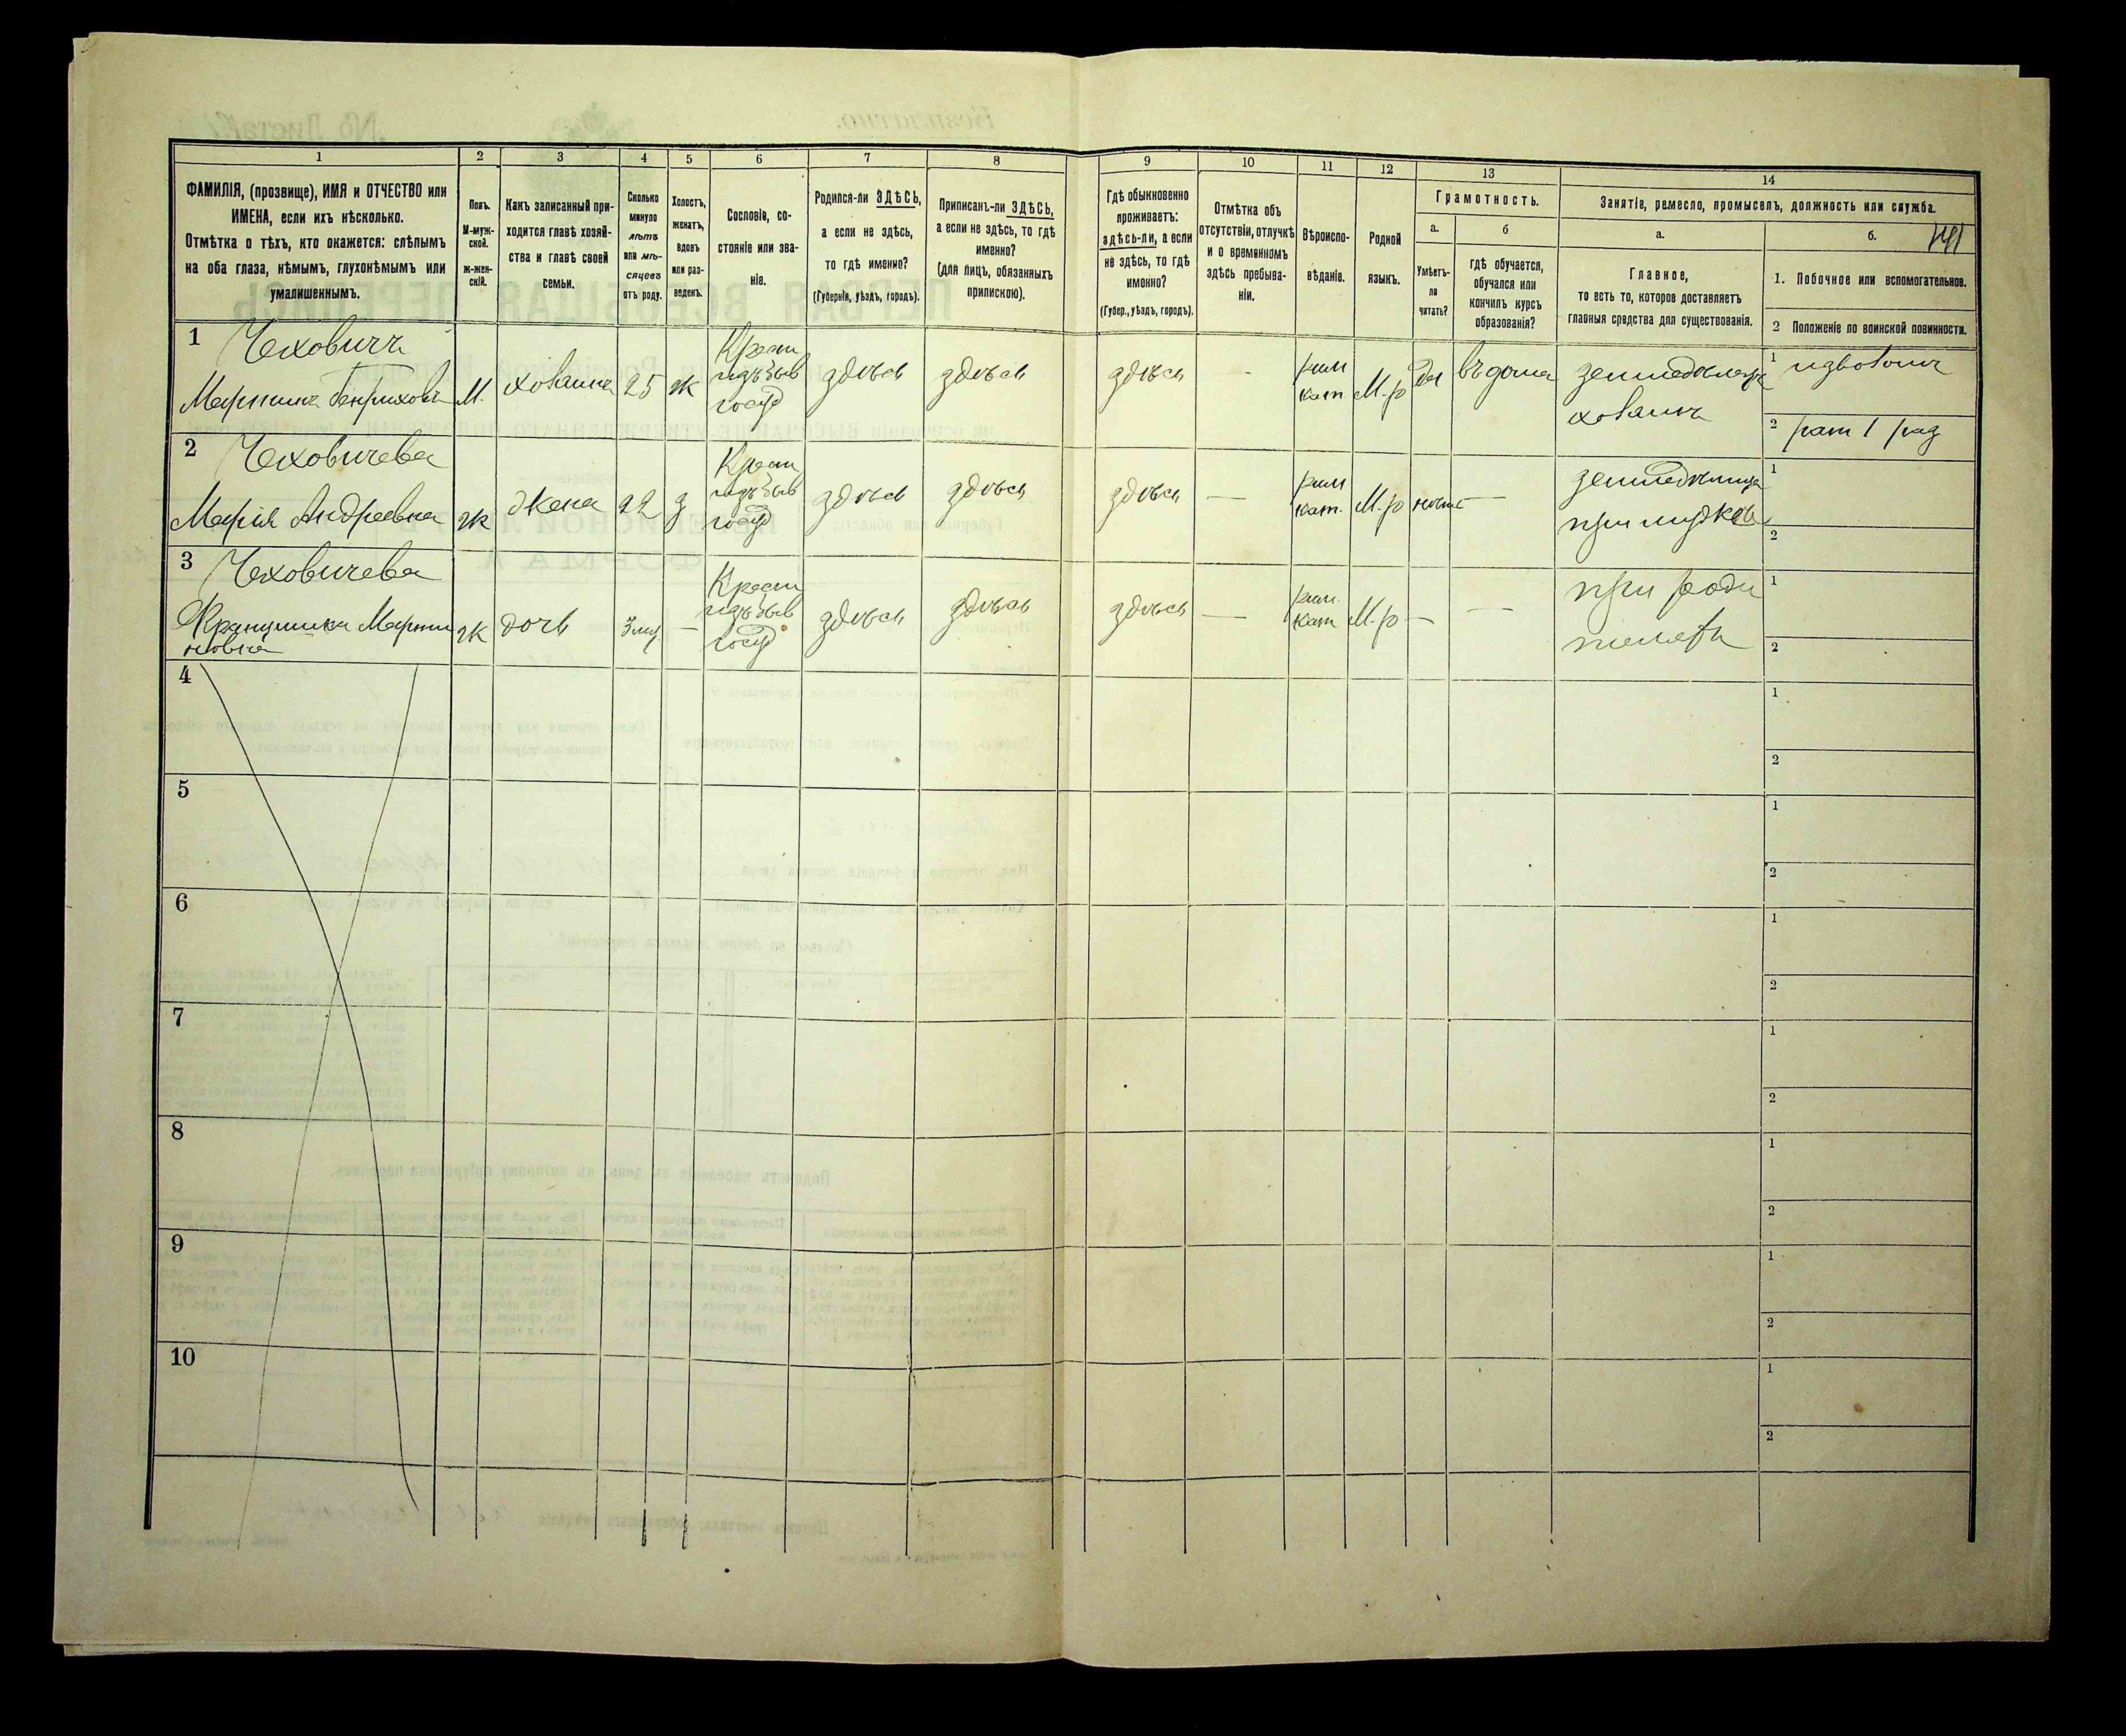 1 2 3 4 5 6 7 8 9 10 11 12 13 14
ФАМИЛІЯ, (прозвище), ИМЯ и ОТЧЕСТВО или
ИМЕНА, если ихъ нѣсколько.
Отмѣтка о тѣхъ, кто окажется: слѣпымъ
на оба глаза, нѣмымъ, глухонѣмымъ или
умалишеннымъ.
Полъ.
М-муж-
ской.
ж-жен-
скій.
Какъ записанный при-
ходится главѣ хозяй-
ства и главѣ своей
семьи.
Сколько
минуло
лѣтъ
или мѣ-
сяцевъ
отъ роду.
Холостъ,
женатъ,
вдовъ
или раз-
веденъ.
Сословіе, со-
стояніе или зва-
ніе.
Родился-ли ЗДѢСЬ,
а если не здѣсь,
то гдѣ именно?
(Губернія, уѣздъ, городъ).
Приписанъ-ли ЗДѢСЬ,
а если не здѣсь, то гдѣ
именно?
(для лицъ, обязанныхъ
припискою).
Гдѣ обыкновенно
проживаетъ:
здѣсь-ли, а если
не здѣсь, то гдѣ
именно?
(Губер., уѣздъ, городъ).
Отмѣтка объ
отсутствіи, отлучкѣ
и о временномъ
здѣсь пребыва-
ніи.
Вѣроиспо-
вѣданіе.
Родной
языкъ.
Грамотность.
а.
Умѣетъ-
ли
читать?
б
гдѣ обучается,
обучался или
кончилъ курсъ
образованія?
Занятіе, ремесло, промыселъ, должность или служба.
а.
Главное,
то есть то, которое доставляетъ
главныя средства для существованія.
б.
1. Побочное или вспомогательное.
2 Положеніе по воинской повинности.
1 Чеховичъ
Мартинъ Генрихов
М. хозяинъ 25 ж
Крест
издѣльв
госуд
здѣсь здѣсь здѣсь -
рим
кат
М.р да въ дома
земледѣлецъ
хозяинъ
1 извозчик
2 рат 1 раз
2 Чеховичева
Марія Андреевна
ж Жена 22 з
Крест
госуд
здѣсь здѣсь здѣсь —
рим
кат.
М.р нѣтъ —
земледѣлица
при мужѣ
1
2
3 Чеховичева
Францишка Мартин
новна
ж дочь 3 м —
Крест
госуд
здѣсь здѣсь здѣсь —
рим.
кат
М.р — —
при роди
телѣхъ
1
2
4 1
2
5 1
2
6 1
2
7 1
2
8 1
2
9 1
2
10 1
2